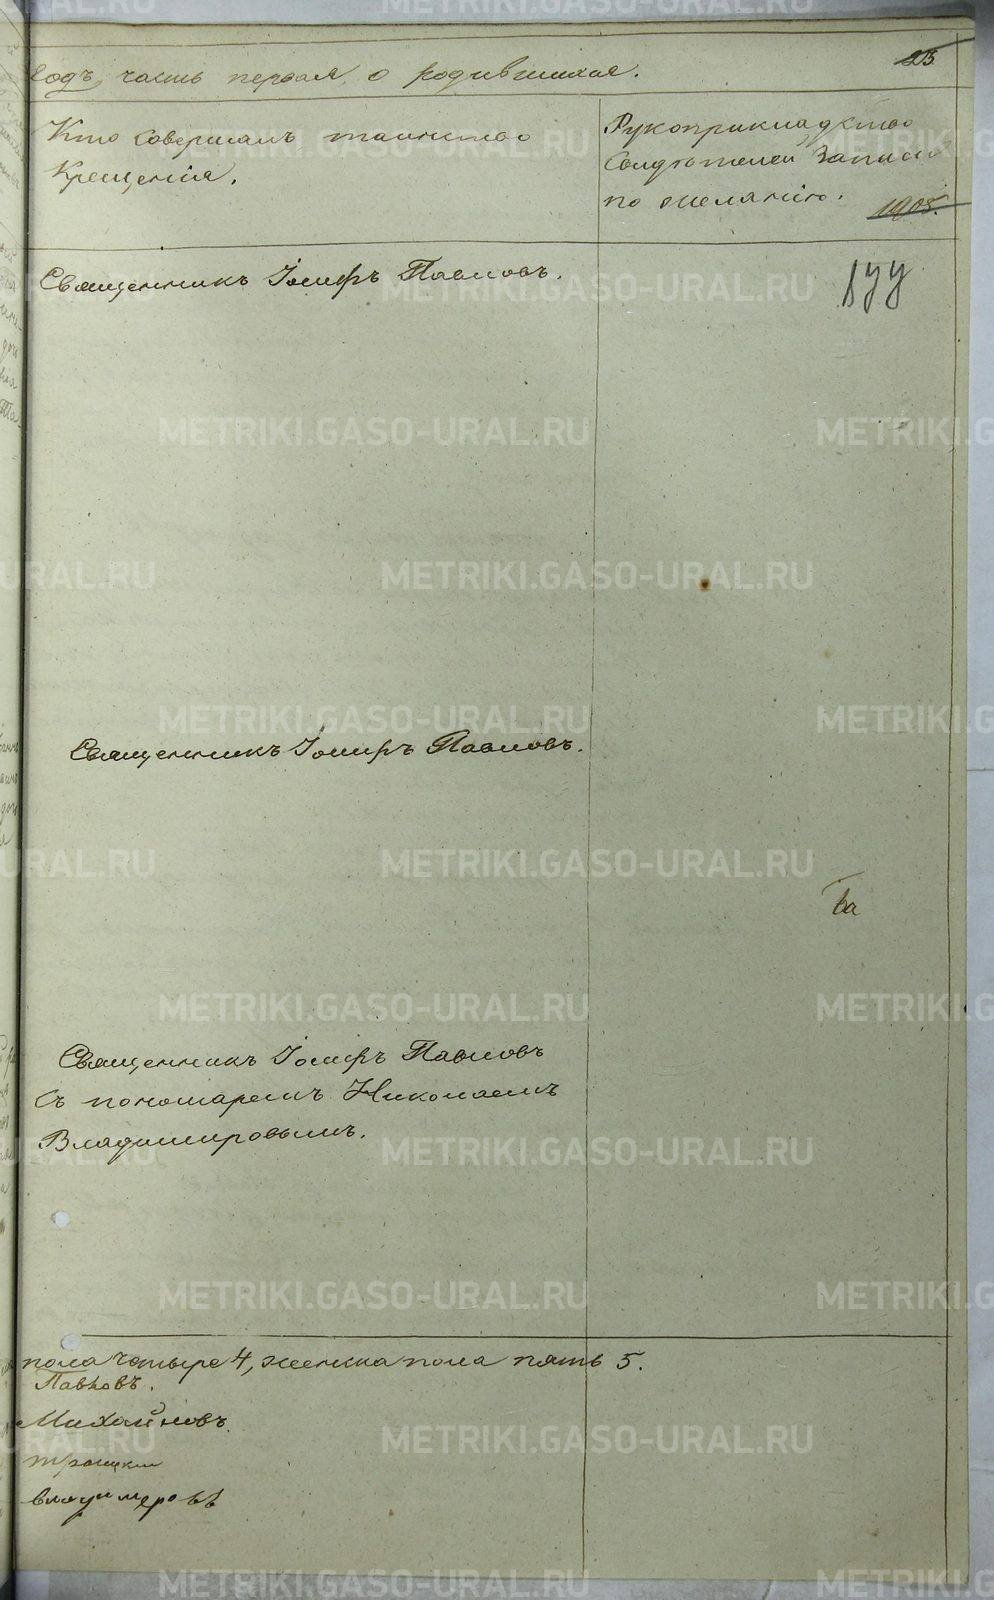 годъ, часть первая, о родившихся.
Кто совершалъ таинство
Крещенія.
Рукоприкладство
Свидѣтелей записи
по желанію.
1905.
Священникъ Іосифъ Павловъ.
Священникъ Іосифъ Павловъ.
Священникъ Іосифъ Павловъ
Съ пономаремъ Николаемъ
Владимировымъ.
пола четыре 4, женска пола пять 5.
Павловъ.
Михайловъ.
Троицкій
Владимеровъ
METRIKI.GASO-URAL.RU